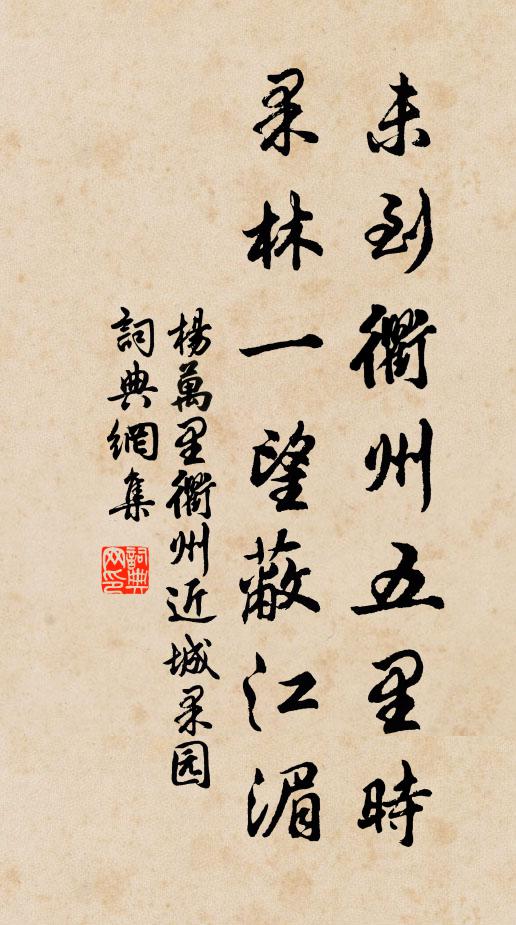 未到衢州五里時
果林一望蔽江湄
楊萬里衢州近城果园
詞典網集
詞典网印